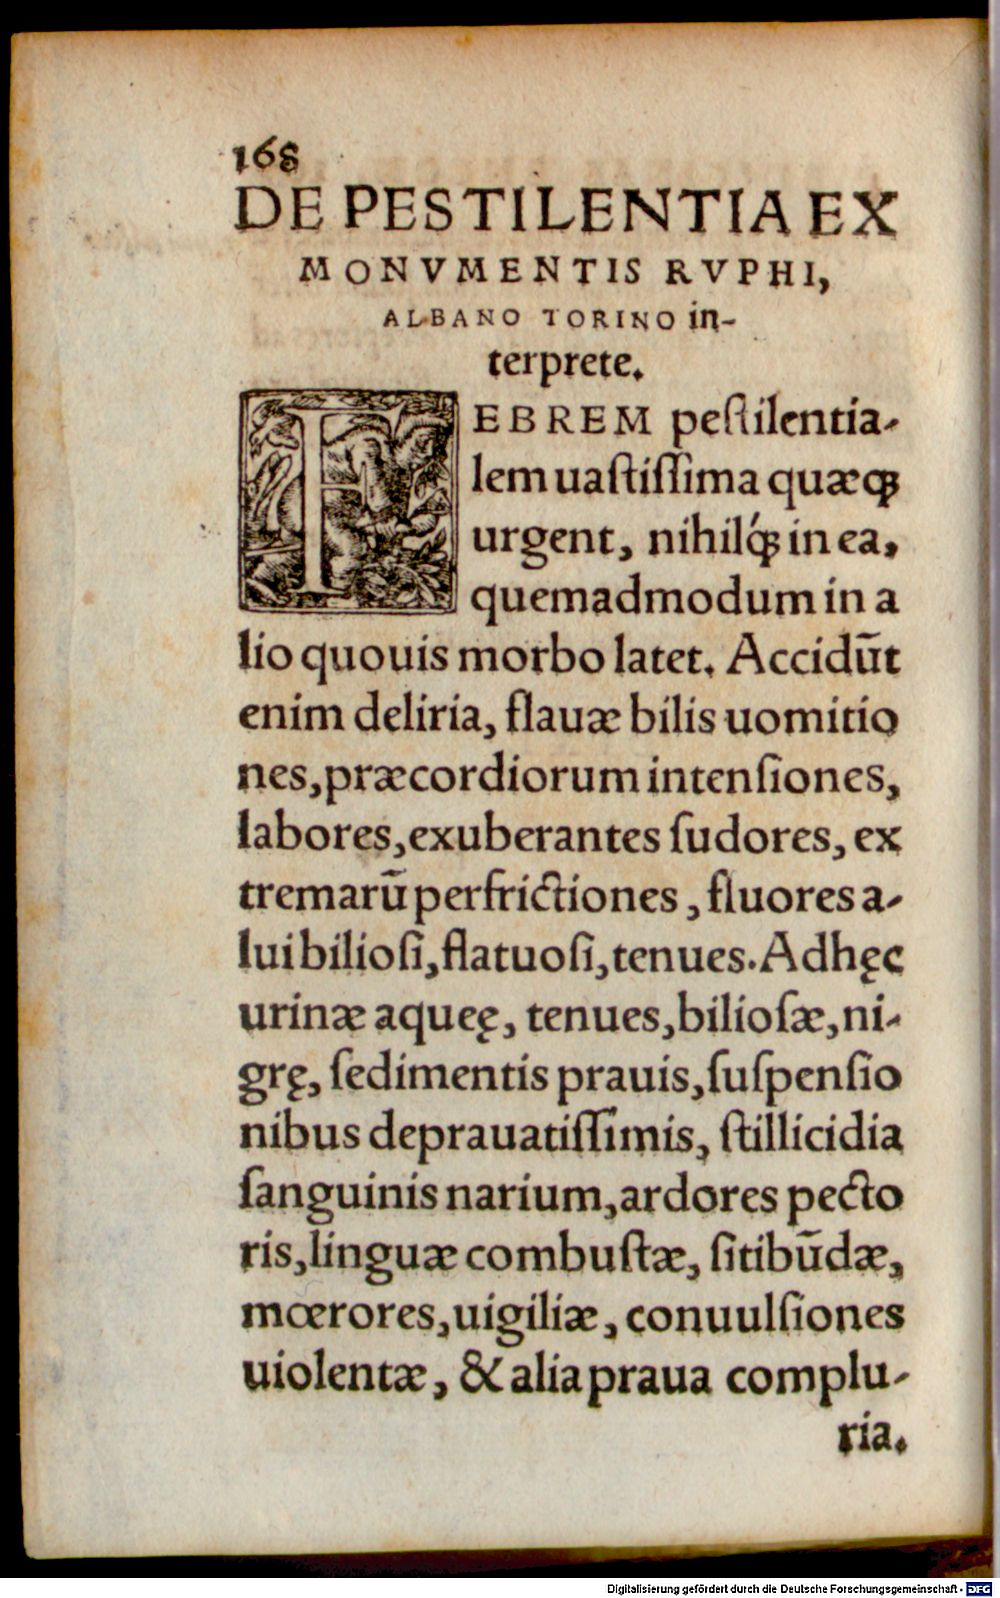 168
DE PESTILENTIA EX
MONVMENTIS RVPHI,
ALBANO TORINO in-
terprete.
FEBREM peſtilentia-
lem uaſtiſſima quæqꝫ
urgent, nihilq́ꝫ in ea,
quemadmodum in a
lio quouis morbo latet. Accidūt
enim deliria, flauæ bilis uomitio
nes, præcordiorum intenſiones,
labores, exuberantes ſudores, ex
tremarū perfrictiones, fluores a-
lui bilioſi, flatuoſi, tenues. Adhęc
urinæ aqueę, tenues, bilioſæ, ni-
grę, ſedimentis prauis, ſuſpenſio
nibus deprauatiſſimis, ſtillicidia
ſanguinis narium, ardores pecto
ris, linguæ combuſtæ, ſitibūdæ,
mœrores, uigiliæ, conuulſiones
uiolentæ, & alia praua complu-
ria.
Digitalisierung gefördert durch die Deutsche Forschungsgemeinschaft - DFG